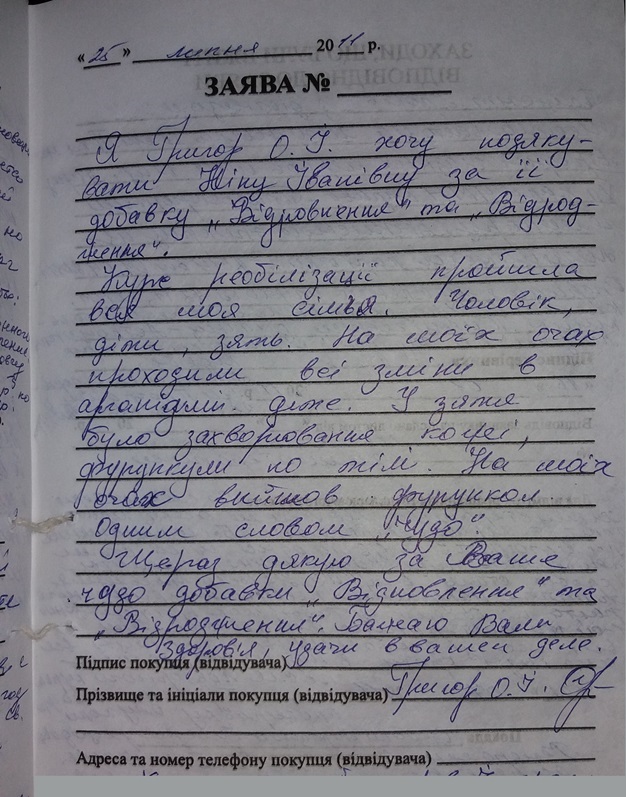 «25» липня 2011 р.
ЗАЯВА №
Я Григор О. І. хочу подяку-
вати Ніну Іванівну за її
добавку „Відновлення" та „Відрод-
ження".
Курс реобілізації пройшла
вся моя сімья. Чоловік,
діти, зять. На моїх очах
проходили всі зміни в
діже. У зятя
було захворювання кочеі,
фурункули по тілі. На моїх
очах вийшов фурункол
Одним словом „Чудо".
Щераз дякую за Ваше
чудо добавки „Відновлення" та
„Відродження". Бажаю Вам
Здоров'я, удачи в вашем деле.
Підпис покупця (відвідувача)
Прізвище та ініціали покупця (відвідувача) Григор О. І.
Адреса та номер телефону покупця (відвідувача)